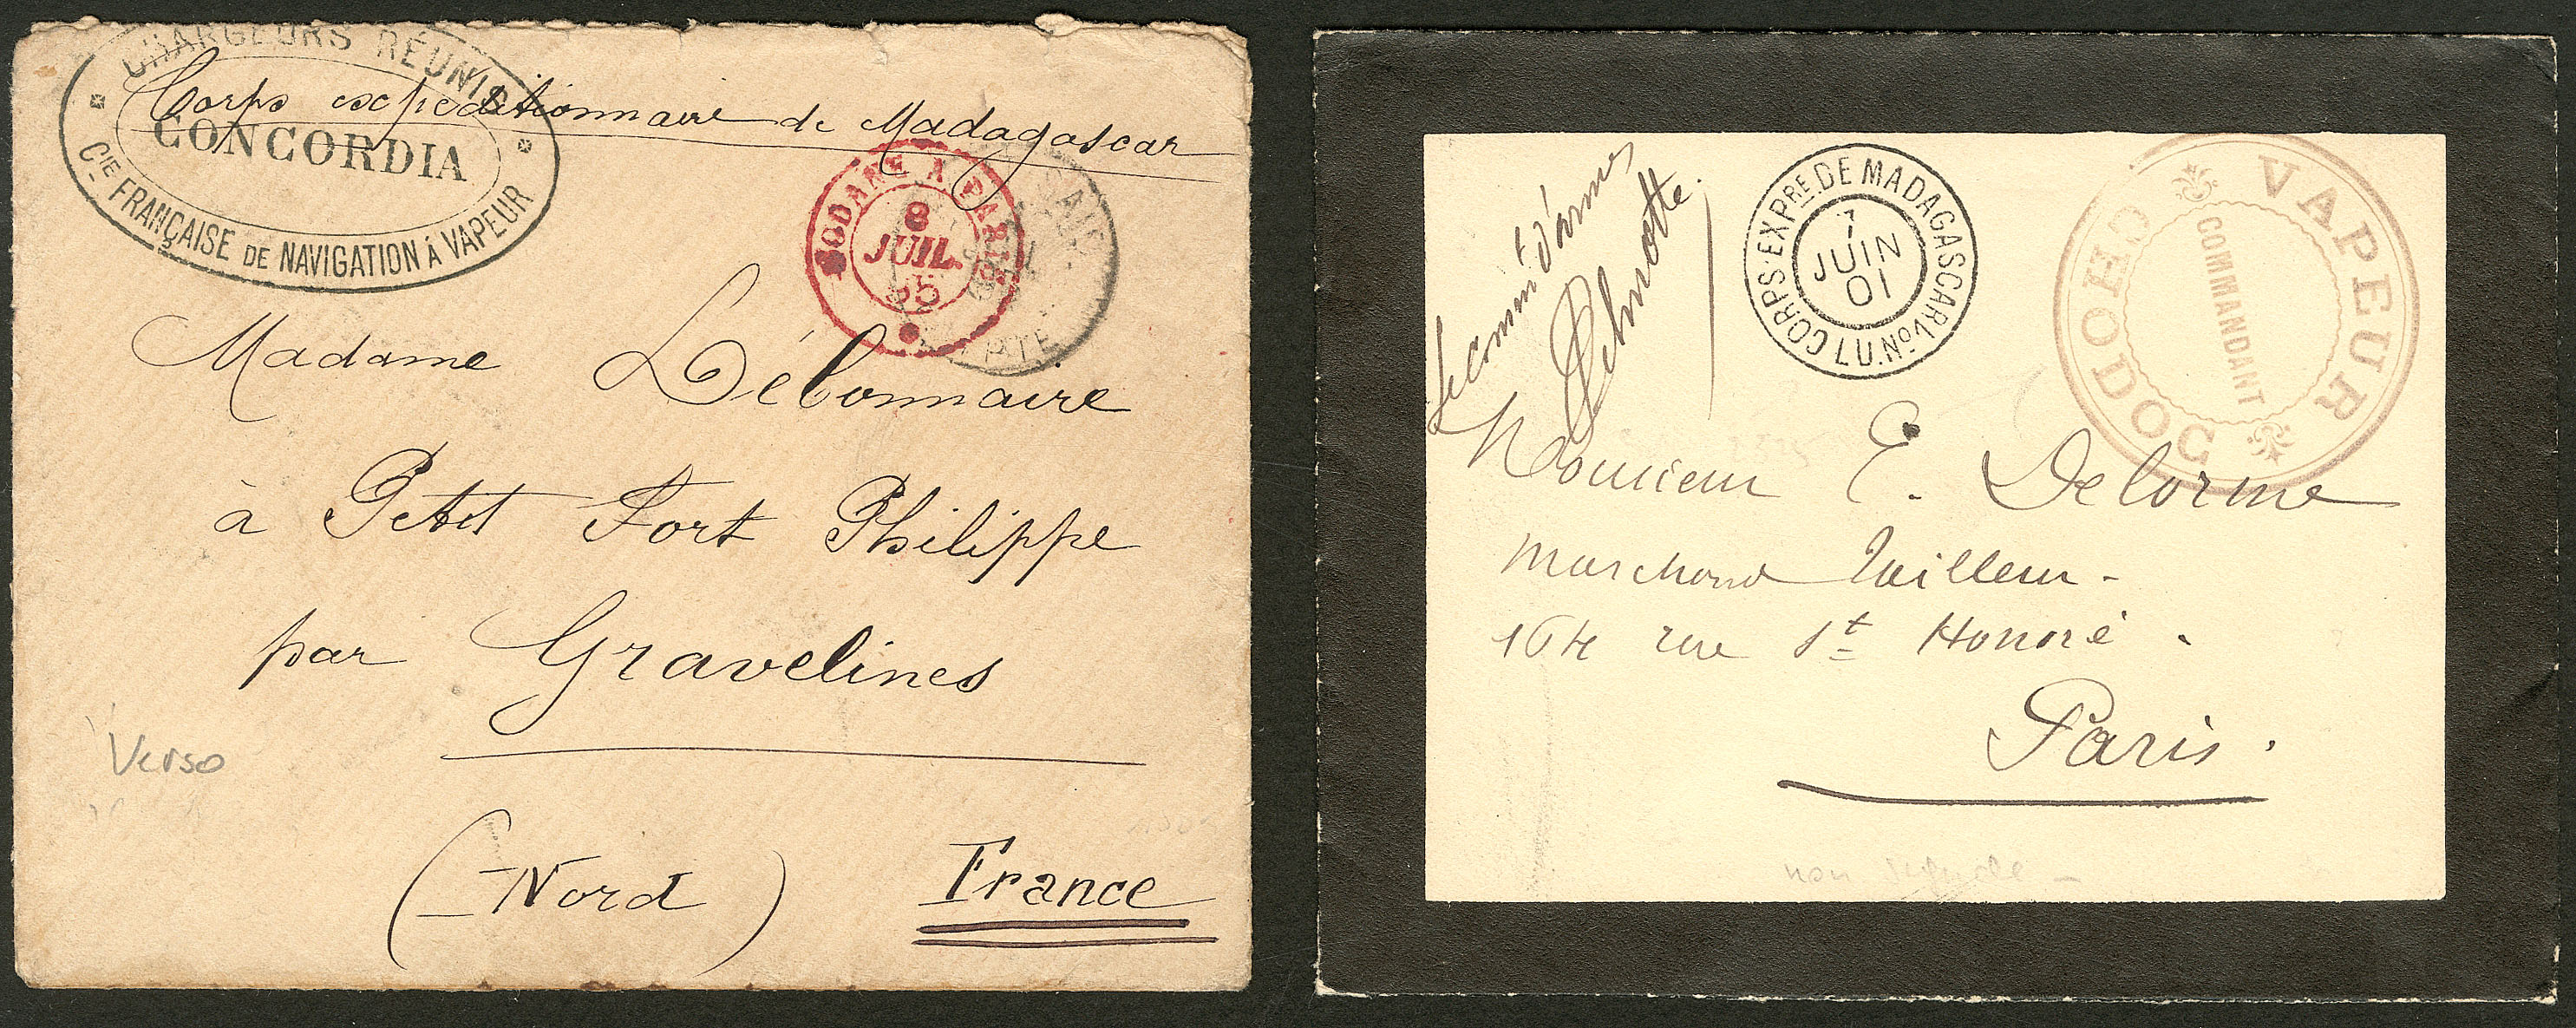 CHARGEURS RÉUNIS
CONCORDIA
CIE FRANÇAISE DE NAVIGATION À VAPEUR
Corps expeditionnaire de Madagascar
MODANE A PARIS
8
JUIL.
95
Madame Lébonnaire
à Petit Fort Philippe
par Gravelines
(Nord) France
Verso
CORPS EXPRE. DE MADAGASCAR Von No 17
7
JUIN
01
VAPEUR
COMMANDANT
CHODOC
Le comm d'armes
Monsieur E. Delorme
Marchand Tailleur -
164 rue St Honoré.
Paris.
non